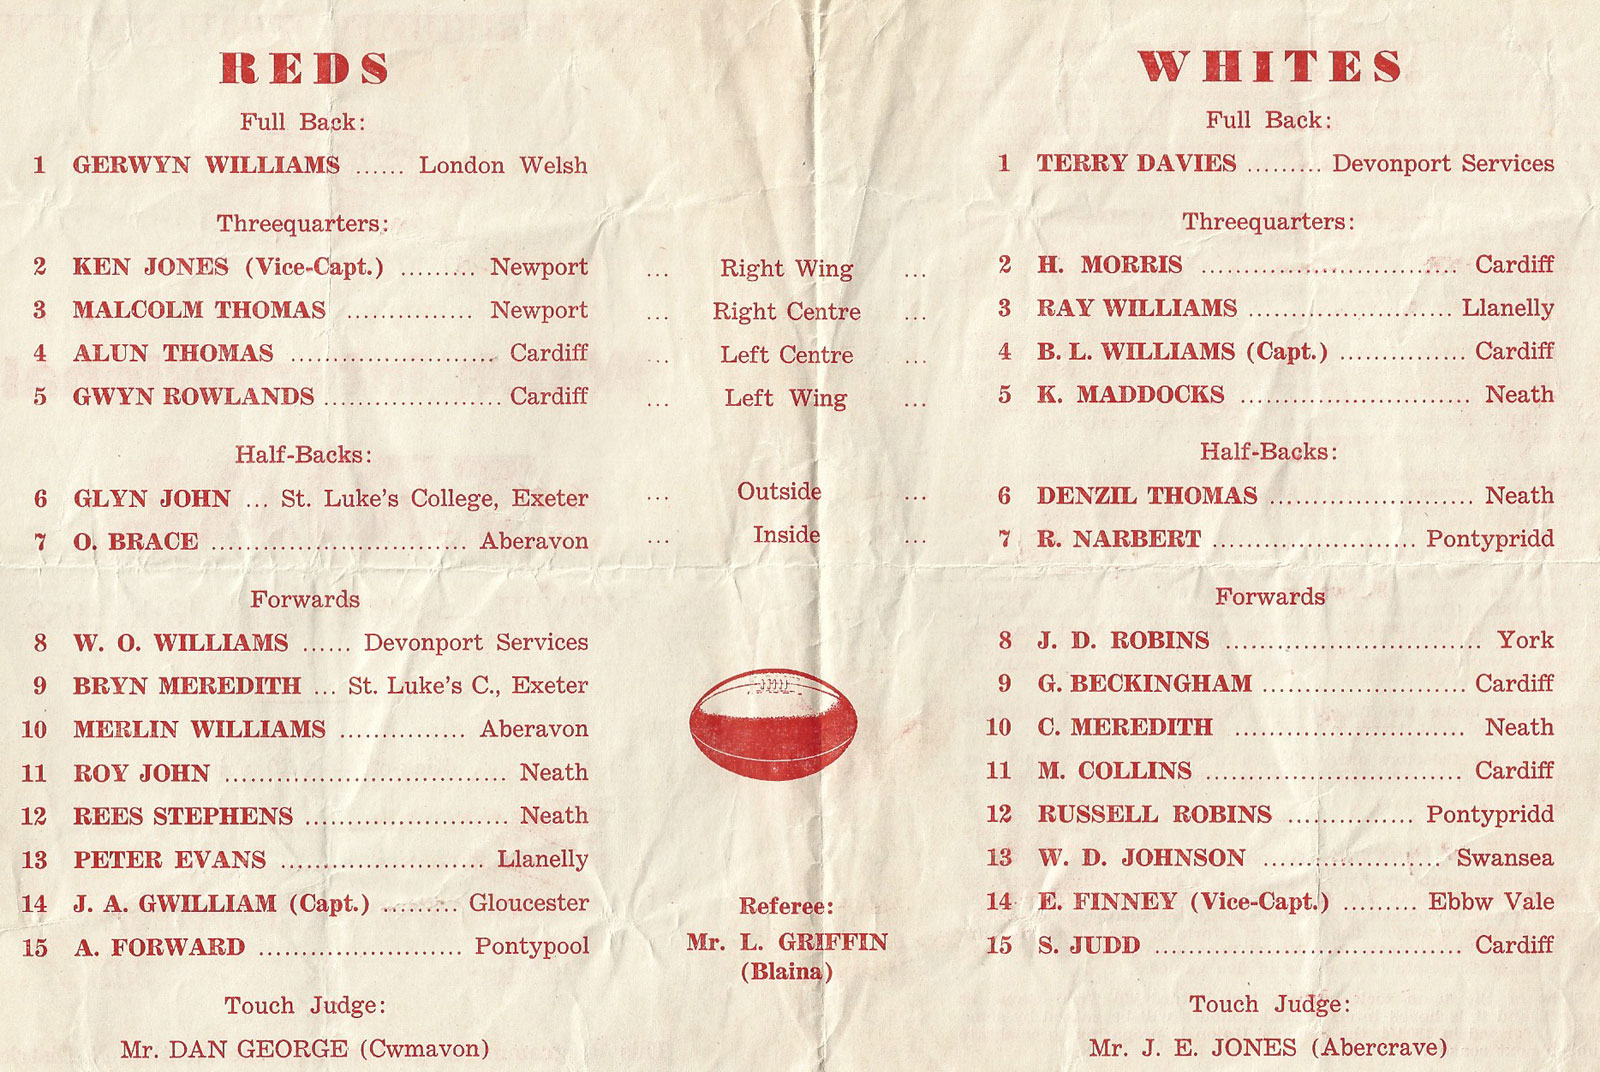 REDS
Full Back:
1 GERWYN WILLIAMS ...... London Welsh
Threequarters:
2 KEN JONES (Vice-Capt.) ......... Newport
3 MALCOLM THOMAS ............... Newport
4 ALUN THOMAS ........................ Cardiff
5 GWYN ROWLANDS ..................... Cardiff
Half-Backs:
6 GLYN JOHN ... St. Luke's College, Exeter
7 O. BRACE .............................. Aberavon
Forwards
8 W. O. WILLIAMS ...... Devonport Services
9 BRYN MEREDITH ... St. Luke's C., Exeter
10 MERLIN WILLIAMS ............... Aberavon
11 ROY JOHN ................................. Neath
12 REES STEPHENS ........................ Neath
13 PETER EVANS ........................ Llanelly
14 J. A. GWILLIAM (Capt.) ......... Gloucester
15 A. FORWARD ........................ Pontypool
Touch Judge:
Mr. DAN GEORGE (Cwmavon)
... Right Wing ...
... Right Centre ...
... Left Centre ...
... Left Wing ...
... Outside ...
... Inside ...
Referee:
Mr. L. GRIFFIN
(Blaina)
WHITES
Full Back:
1 TERRY DAVIES ......... Devonport Services
Threequarters:
2 H. MORRIS .............................. Cardiff
3 RAY WILLIAMS ........................ Llanelly
4 B. L. WILLIAMS (Capt.) ............... Cardiff
5 K. MADDOCKS ........................... Neath
Half-Backs:
6 DENZIL THOMAS ........................ Neath
7 R. NARBERT ........................ Pontypridd
Forwards
8 J. D. ROBINS .............................. York
9 G. BECKINGHAM ........................ Cardiff
10 C. MEREDITH ........................... Neath
11 M. COLLINS .............................. Cardiff
12 RUSSELL ROBINS ............... Pontypridd
13 W. D. JOHNSON ..................... Swansea
14 E. FINNEY (Vice-Capt.) ......... Ebbw Vale
15 S. JUDD .................................... Cardiff
Touch Judge:
Mr. J. E. JONES (Abercrave)